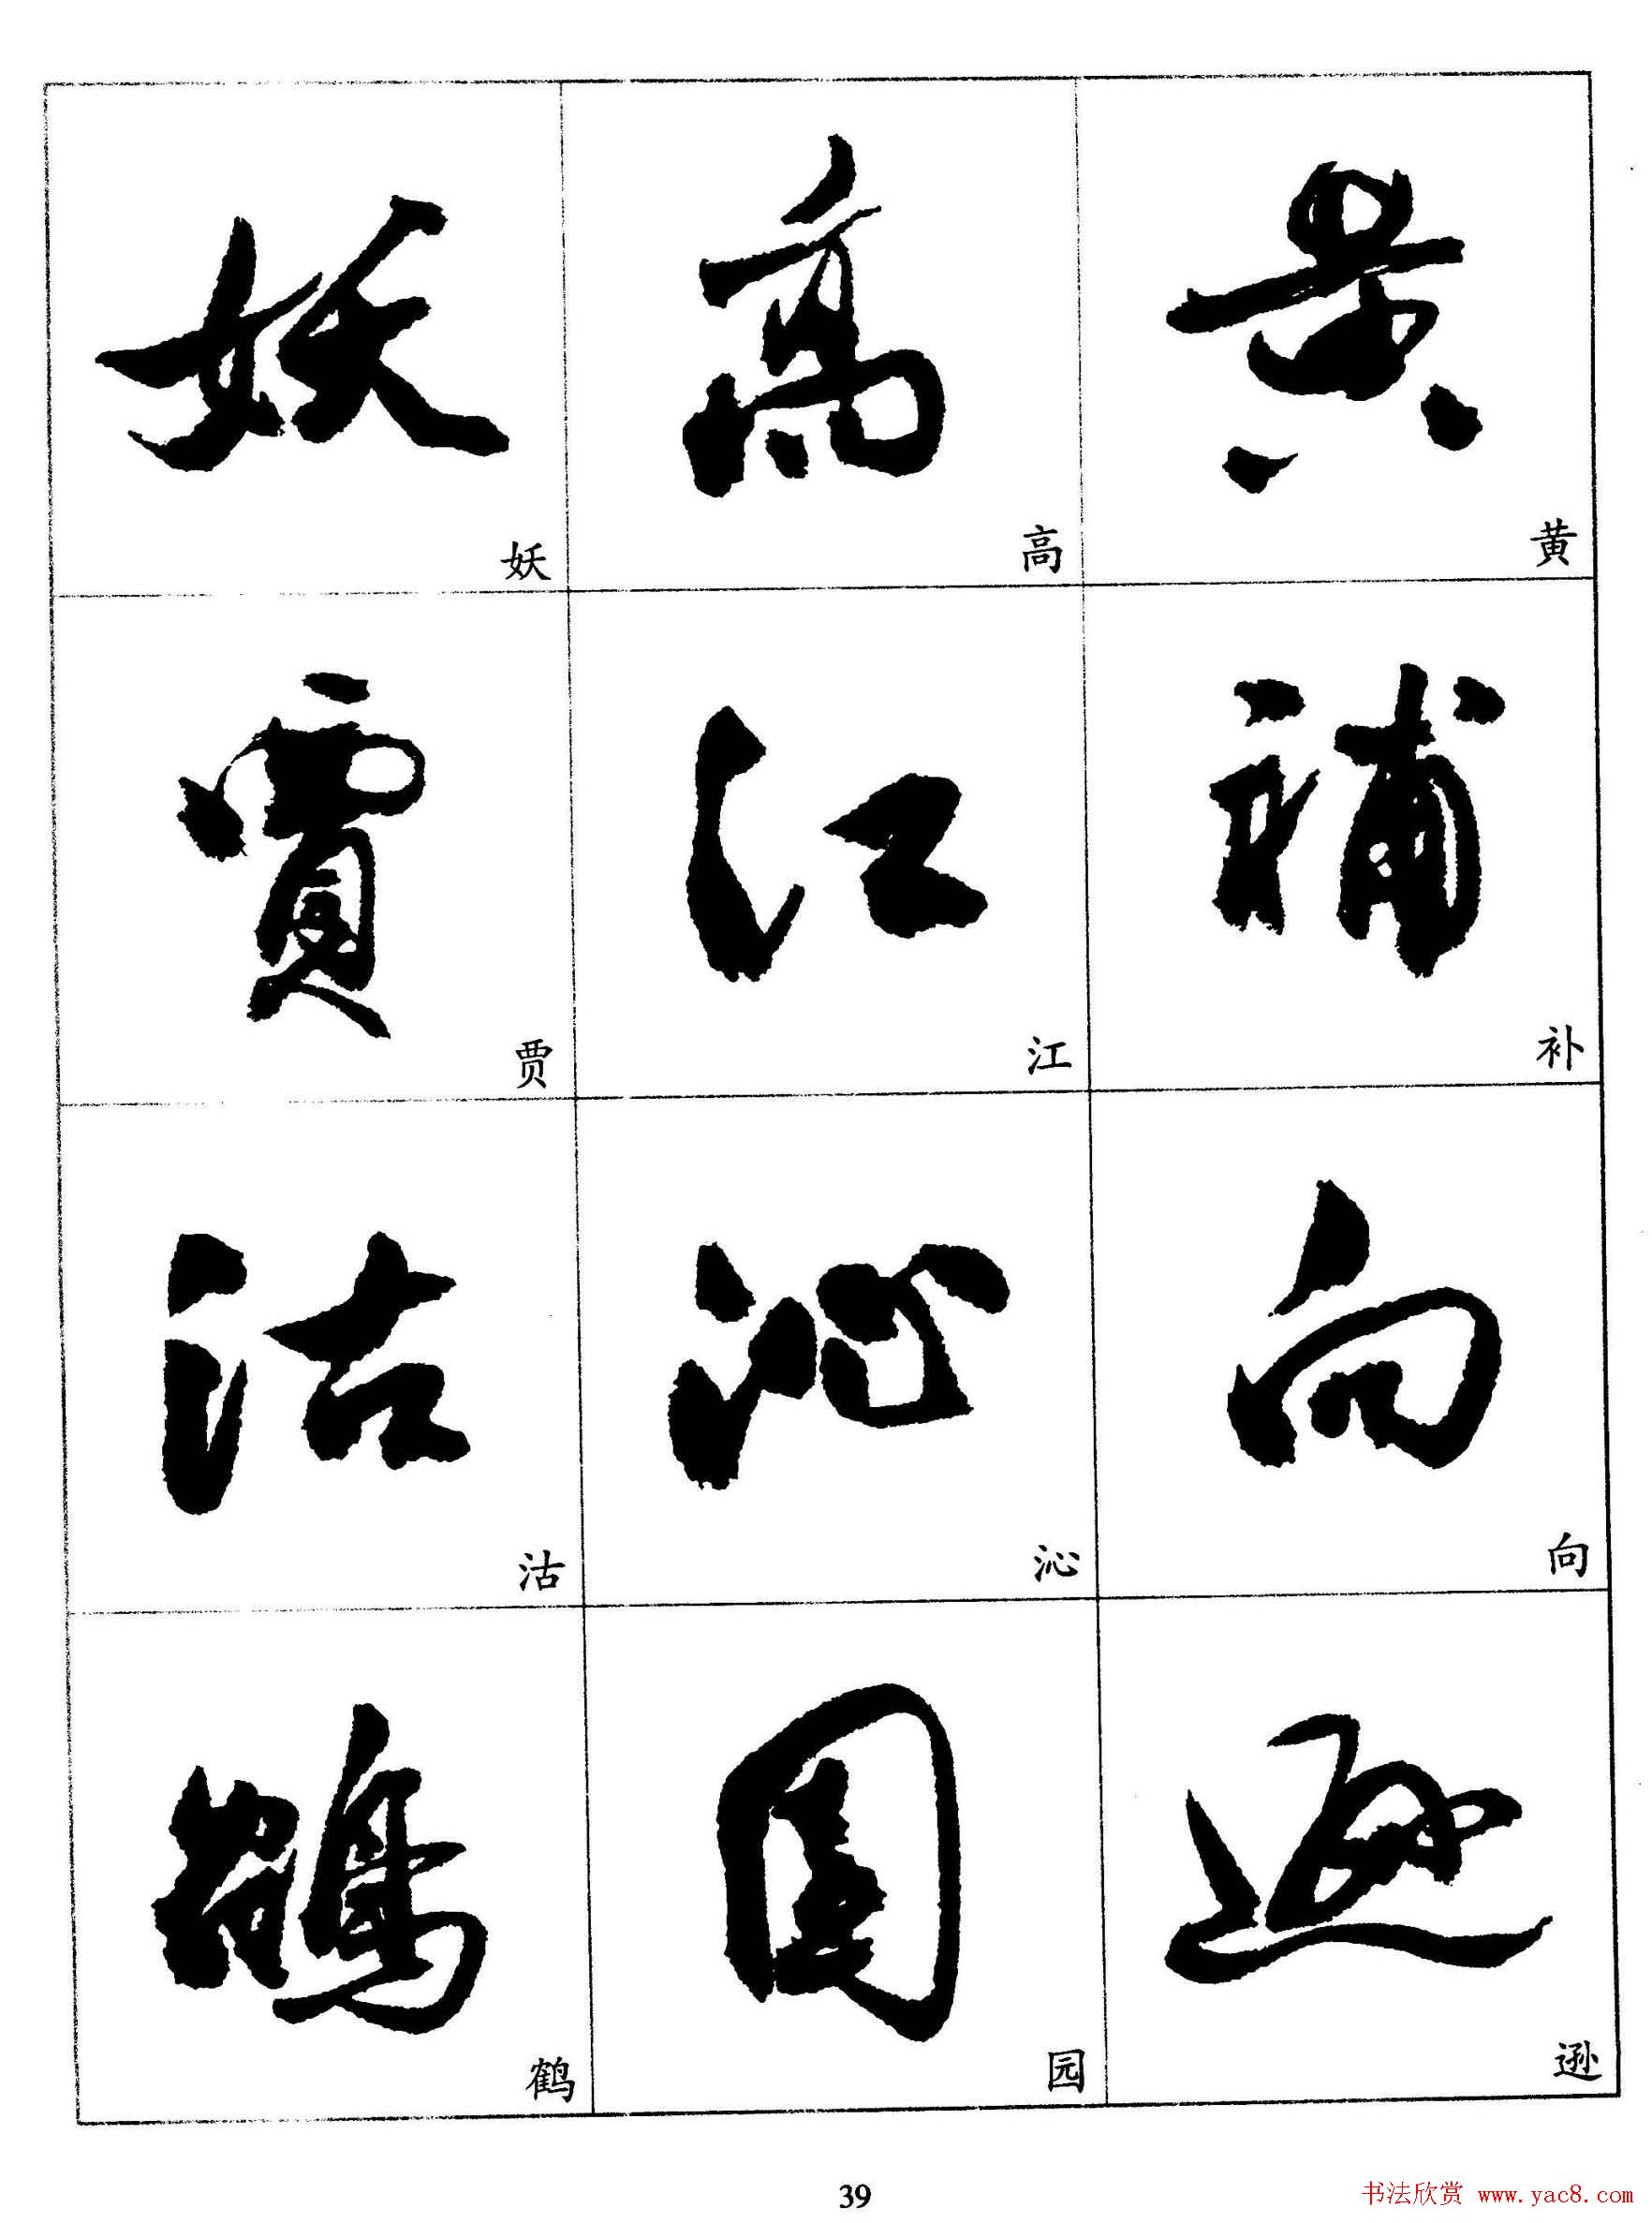 黄
黄
補
补
向
向
遜
逊
高
高
江
江
沁
沁
園
园
妖
妖
賈
贾
沽
沽
鶴
鹤
39
书法欣赏 www.yac8.com